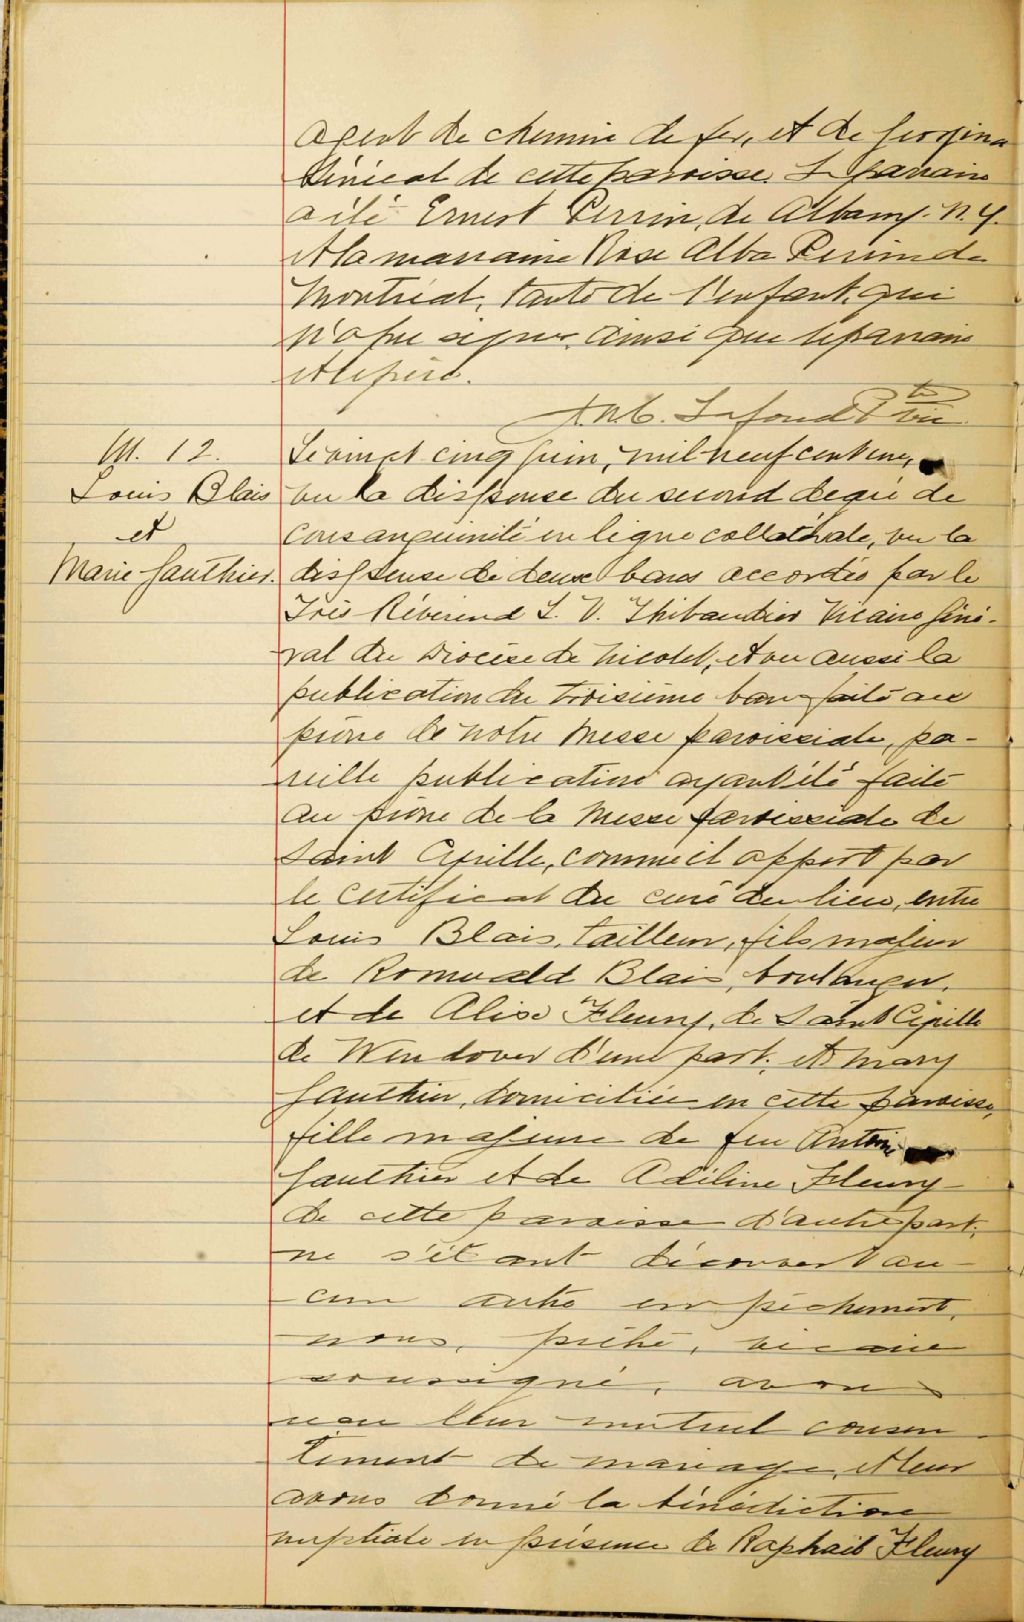 agent de chemin de fer, et de Georgina
Sénécal de cette paroisse. Le parrain
a été Ernest Perrin, de Albany. N. Y.
et la marraine Rose Alba Perrin de
Montréal, tante de l'enfant, qui
n'a pu signer ainsi que le parrain
et le père.
Lafond Ptre vic.
M. 12.
Louis Blais
et
Marie Gauthier.
Le vingt cinq juin, mil neuf cent
vu la dispense du second degré de
consanguinité en ligne collatérale, vu la
dispense de deux bans accordés par le
Très Révérend S. V. Thibaudier Vicaire Géné-
ral du Diocèse de Nicolet, et vu aussi la
publication du troisième ban faite au
prône de notre Messe paroissiale, pa-
reille publication ayant été faite
au prône de la Messe paroissiale de
Saint Cyrille, comme il appert par
le certificat du curé du lieu, entre
Louis Blais, tailleur, fils majeur
de Romuald Blais, boulanger,
et de Alise Fleury, de Saint Cyrille
de Wendover d'une part; et Mary
Gauthier, domiciliée en cette paroisse,
fille majeure de feu Antoine
Gauthier et de Adéline Fleury
de cette paroisse d'autre part;
ne s'étant découvert au-
cun autre empêchement,
nous, prêtre, vicaire
soussigné, avons
reçu leur mutuel consen-
tement de mariage, et leur
avons donné la bénédiction
nuptiale en présence de Raphaël Fleury